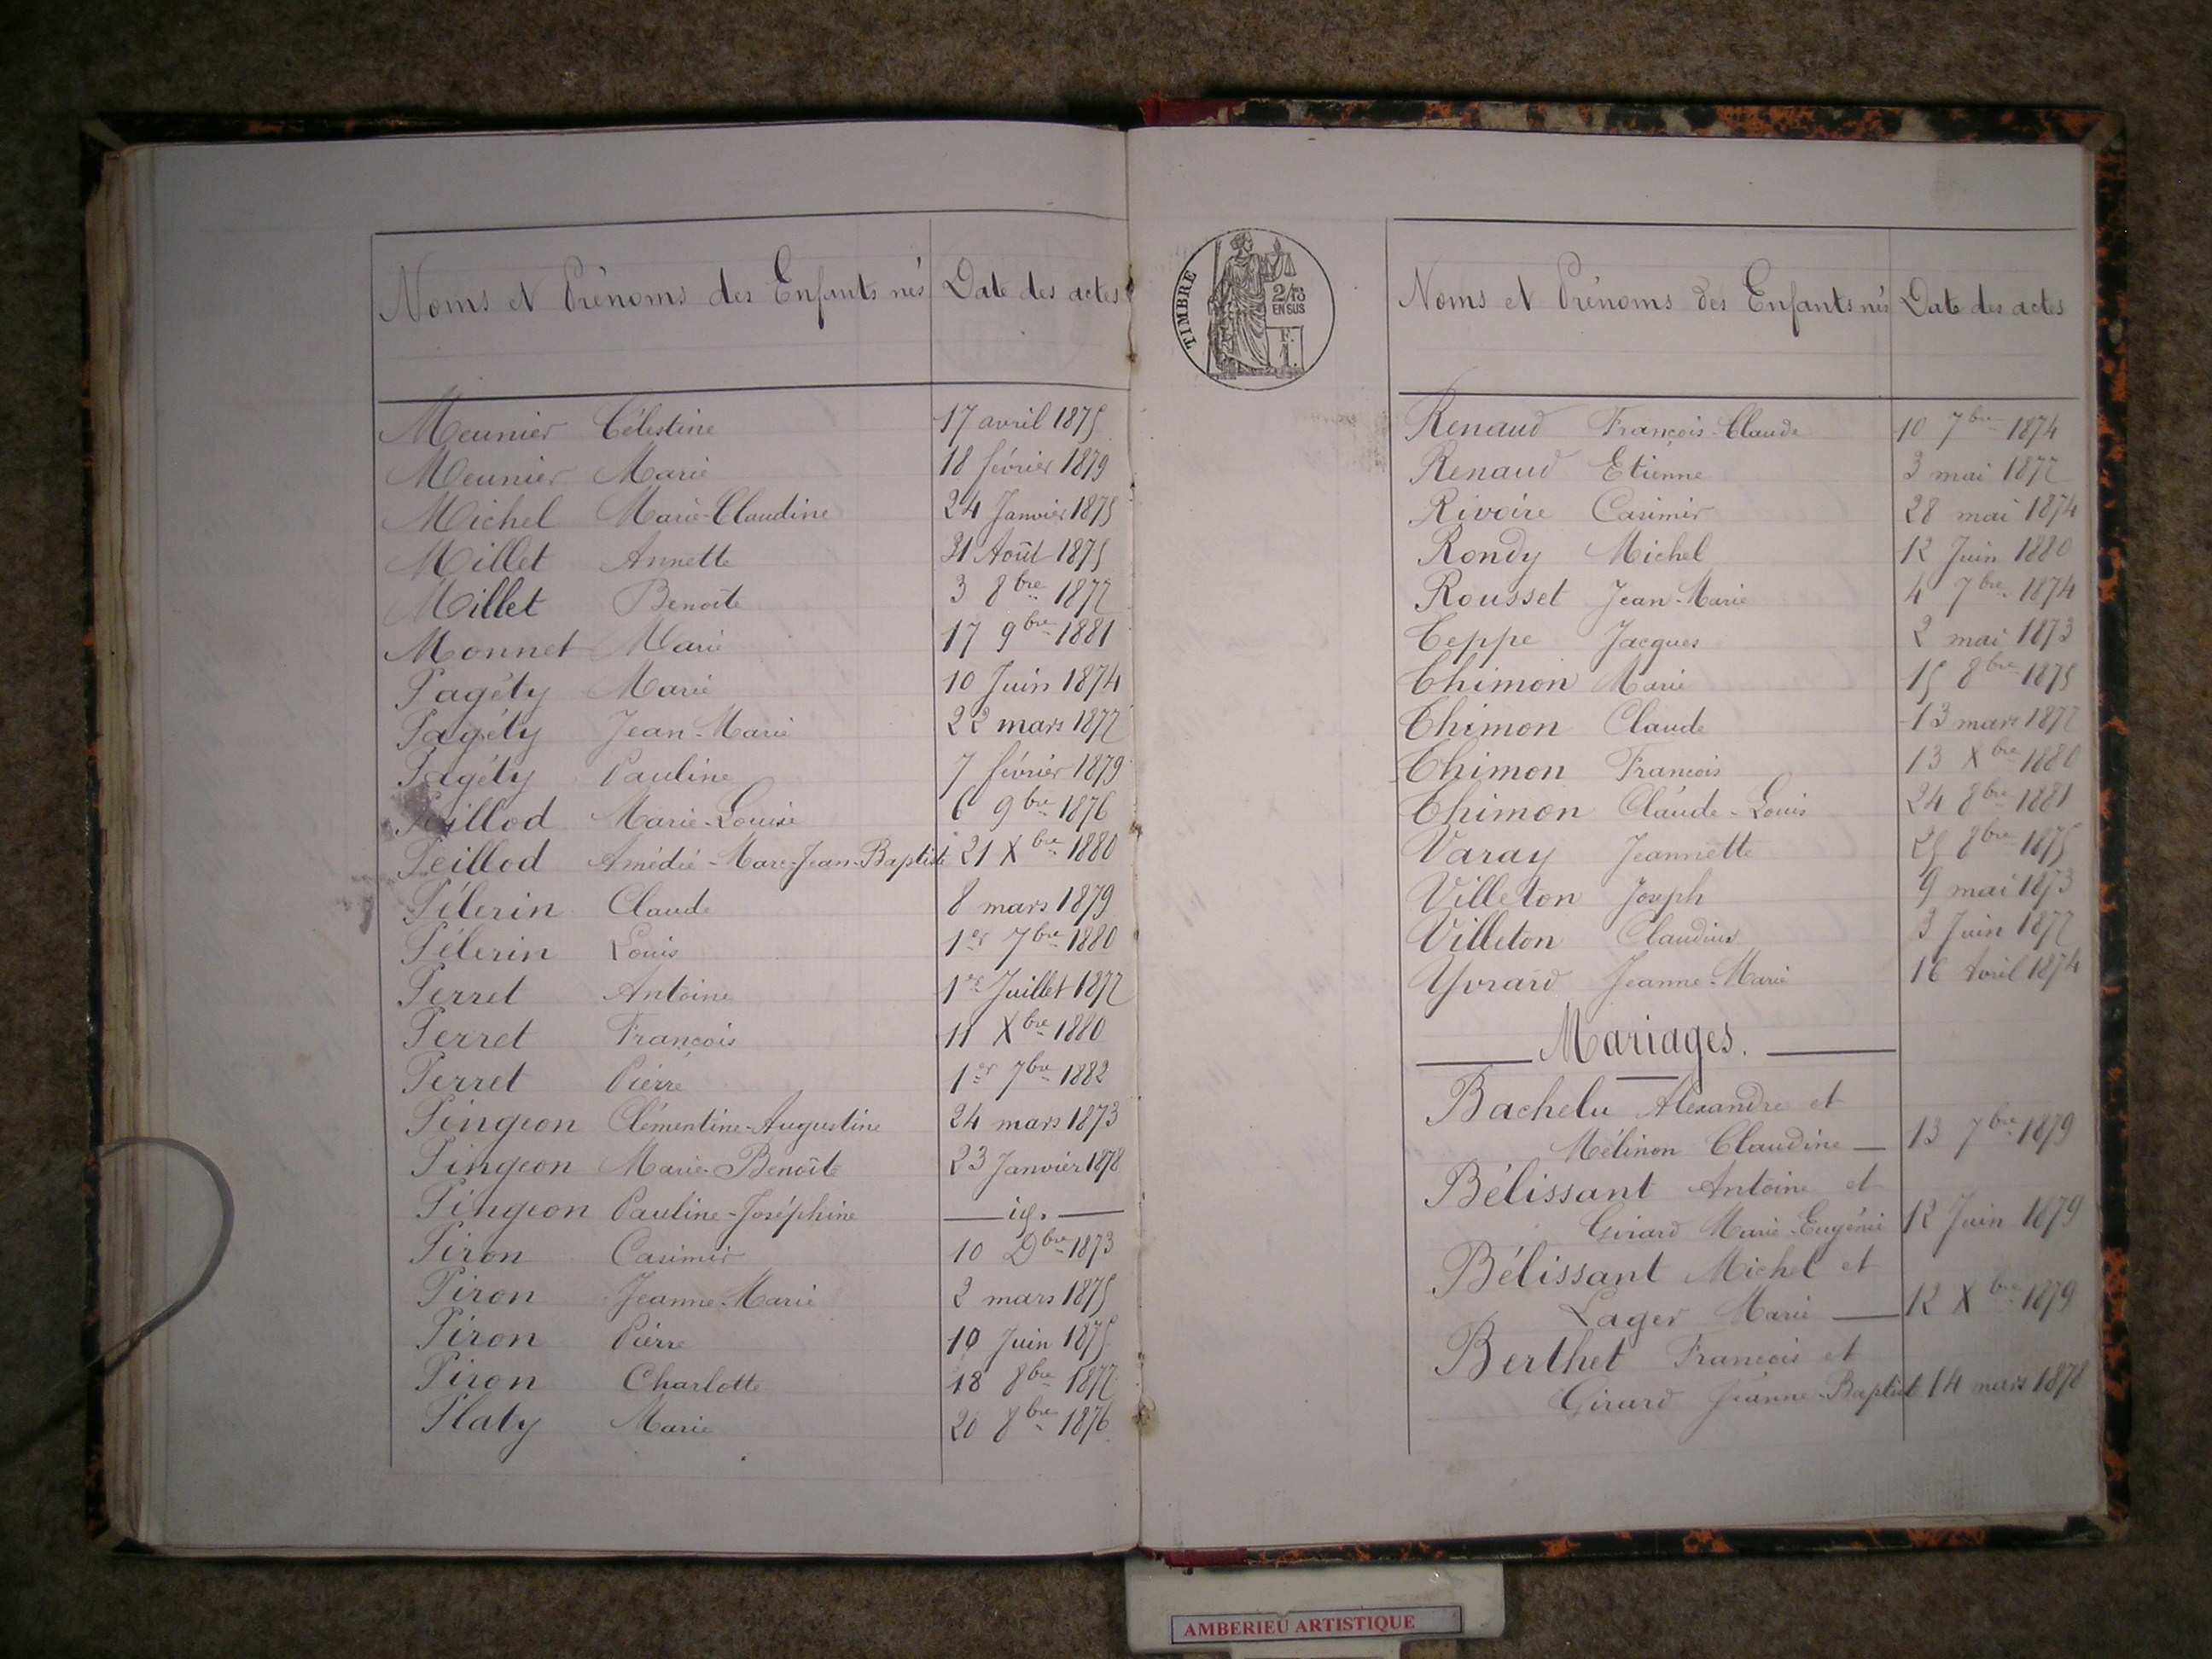 Noms et Prénoms des Enfants nés Date des actes
Meunier Célestine 17 avril 1875
Meunier Marie 18 février 1879
Michel Marie-Claudine 24 Janvier 1875
Millet Annette 31 Août 1875
Millet Benoîte 3 8bre 1877
Monnet Marie 17 9bre 1881
Pagéty Marie 10 Juin 1874
Pagéty Jean-Marie 22 mars 1877
Pagéty Pauline 7 février 1879
Peillod Marie-Louise 6 9bre 1876
Peillod Amédée-Marc-Jean-Baptiste 21 Xbre 1880
Pélerin Claude 8 mars 1879
Pélerin Louis 1er 7bre 1880
Perret Antoine 1er Juillet 1877
Perret François 11 Xbre 1880
Perret Pierre 1er 7bre 1882
Pingeon Clémentine-Augustine 24 mars 1873
Pingeon Marie-Benoîte 23 Janvier 1878
Pingeon Pauline-Joséphine — id. —
Piron Casimir 10 Dbre 1873
Piron Jeanne-Marie 2 mars 1875
Piron Pierre Juin 1875
Piron Charlotte 18 8bre 1877
Platy Marie 20 8bre 1876
TIMBRE
2/10
EN SUS
F.
1.
Noms et Prénoms des Enfants nés Date des actes
Renaud François-Claude 10 7bre 1874
Renaud Etienne 3 mai 1877
Rivoire Casimir 28 mai 1874
Rondy Michel 12 Juin 1880
Rousset Jean-Marie 4 7bre 1874
Teppe Jacques 2 mai 1873
Thimon Marie 15 8bre 1875
Thimon Claude 13 mars 1877
Thimon François 13 Xbre 1880
Thimon Claude-Louis 24 8bre 1881
Varay Jeannette 25 8bre 1875
Villeton Joseph 9 mai 1873
Villeton Claudius 3 Juin 1877
Yvrard Jeanne-Marie 16 Avril 1874
Mariages.
Bachelu Alexandre et
Mélinon Claudine — 13 7bre 1879
Bélissant Antoine et
Girard Marie-Eugénie 12 Juin 1879
Bélissant Michel et
Lager Marie — 12 Xbre 1879
Berthet François et
Girard Jeanne-Baptiste 14 mars 1878
AMBERIEU ARTISTIQUE